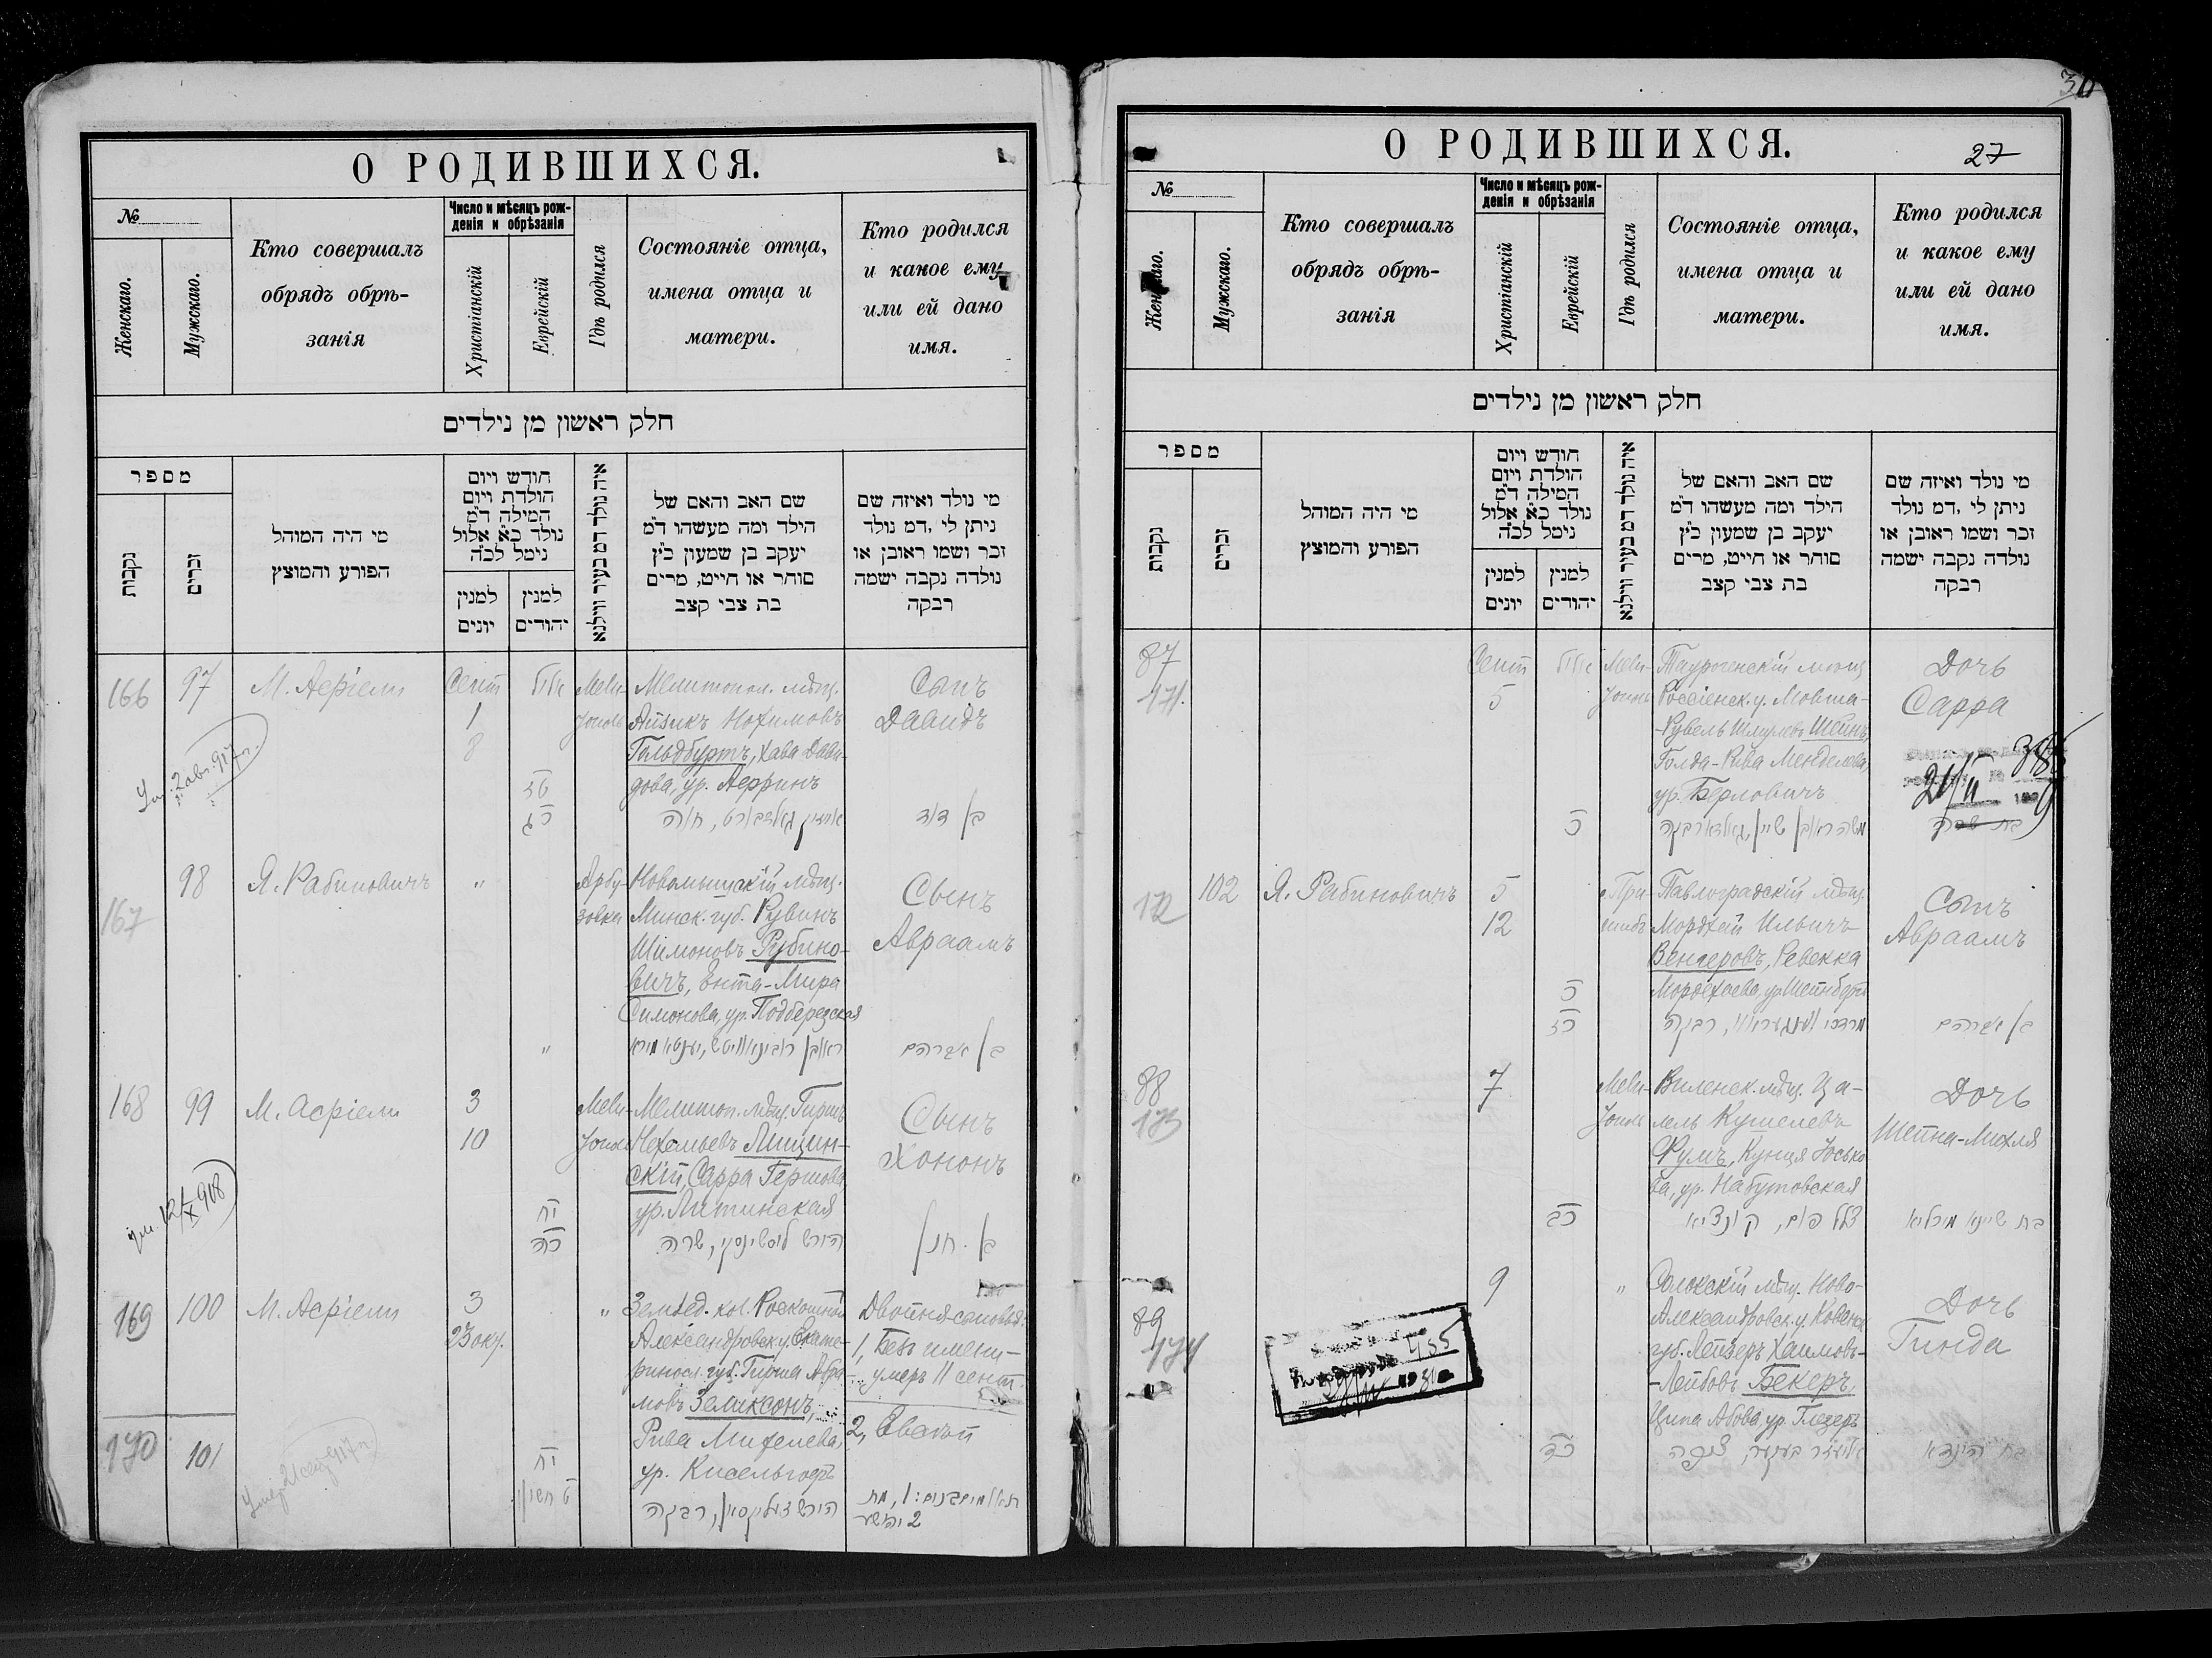 О РОДИВШИХСЯ.
№
Женскаго.
Мужскаго.
Кто совершалъ
обрядъ обрѣ-
занія
Число и мѣсяцъ рож-
денія и обрѣзанія
Христіанскій
Еврейскій
Гдѣ родился
Состояніе отца,
имена отца и
матери.
Кто родился
и какое ему
или ей дано
имя.
חלק ראשון מן נילדים
מספר
נקבות
זכרים
מי היה המוהל
הפורע והמוצץ
חודש ויום
הולדת ויום
המילה ד״מ
נולד כ״א אלול
נימל לכ״ה
למנין
יונים
למנין
יהודים
איה נולד דמ בעיר ווילנא
שם האב והאם של
הילד ומה מעשהו ד״מ
יעקב בן שמעון כ״ץ
סוחר או חייט, מרים
בת צבי קצב
מי נולד ואיזה שם
ניתן לי ,דמ נולד
זכר ושמו ראובן או
נולדה נקבה ישמה
רבקה
166
97
М. Асріели
Сент
1
8
אלול
טז
כג
Мели-
тополь
Мелитопол. мѣщ.
Айзикъ Нохимовъ
Гольдбуртъ, Хава Дави-
дова, ур. Аерринъ
Сынъ
Давидъ
בן דוד
Ум. 2 авг. 917 г.
167
98
Я. Рабиновичъ
"
Арбу-
зовка
Минск. губ. Рувинъ
Шимоновъ Рубино-
вичъ, Ента-Мира
Симонова, ур. Подберезская
Сынъ
Авраамъ
"
בן אברהם
168
99
М. Асріели
3
10
יח
כה
Мели-
тополь
Мелитоп. мѣщ. Гиршъ
Лищин-
скій, Сарра Гершова,
ур. Литинская
Сынъ
Хононъ
בן חנן
ум. 12/X 918
169
100
М. Асріели
3
23 окт.
"
Землед. кол. Роскошной
Александровск. у. Екате-
риносл. губ. Гирша Абра-
мовъ Зеликсонъ,
Рива Михелева,
ур. Кисельгофъ
Двойня сыновья:
1, Безъ имени-
умеръ 11 сент.
2, Евсѣй
170
101
יח
ט חשון
О РОДИВШИХСЯ.
27
30
№
Женскаго.
Мужскаго.
Кто совершалъ
обрядъ обрѣ-
занія
Число и мѣсяцъ рож-
денія и обрѣзанія
Христіанскій
Еврейскій
Гдѣ родился
Состояніе отца,
имена отца и
матери.
Кто родился
и какое ему
или ей дано
имя.
חלק ראשון מן נילדים
מספר
נקבות
זכרים
מי היה המוהל
הפורע והמוצץ
חודש ויום
הולדת ויום
המילה ד״מ
נולד כ״א אלול
נימל לכ״ה
למנין
יונים
למנין
יהודים
איה נולד דמ בעיר ווילנא
שם האב והאם של
הילד ומה מעשהו ד״מ
יעקב בן שמעון כ״ץ
סוחר או חייט, מרים
בת צבי קצב
מי נולד ואיזה שם
ניתן לי ,דמ נולד
זכר ושמו ראובן או
נולדה נקבה ישמה
רבקה
87
171.
Сент
5
אלול
כ
Мели-
тополь
Таурогенскій мѣщ.
Россіенск. у. Мовша-
-Рувель Шмулевъ Шейнъ,
Голда-Рива Менделева,
ур. Берловичъ
Дочь
Сарра
172
102
Я. Рабиновичъ
5
12
כ
כז
При-
шибъ
Павлоградскій мѣщ.
Мордхай Ильичъ
Венгеровъ, Ревекка
Мордехаева, ур. Шейнбергъ
Сынъ
Авраамъ
בן אברהם
88
173
7
כב
Мели-
тополь
Виленск. мѣщ. Ца-
лель Кушелевъ
Фумъ, Кунця Юсько-
ва, ур. Набутовская
Дочь
Шейна-Михля
בת שיינא מיכליא
89
174
9
כד
"
Солокскій мѣщ. Ново-
Александровск. у. Ковенск.
губ. Лейзеръ Хаимовъ-
-Лейбовъ Бекеръ,
Ципа Абова, ур. Глезеръ
Дочь
Гинда
בת הינדא